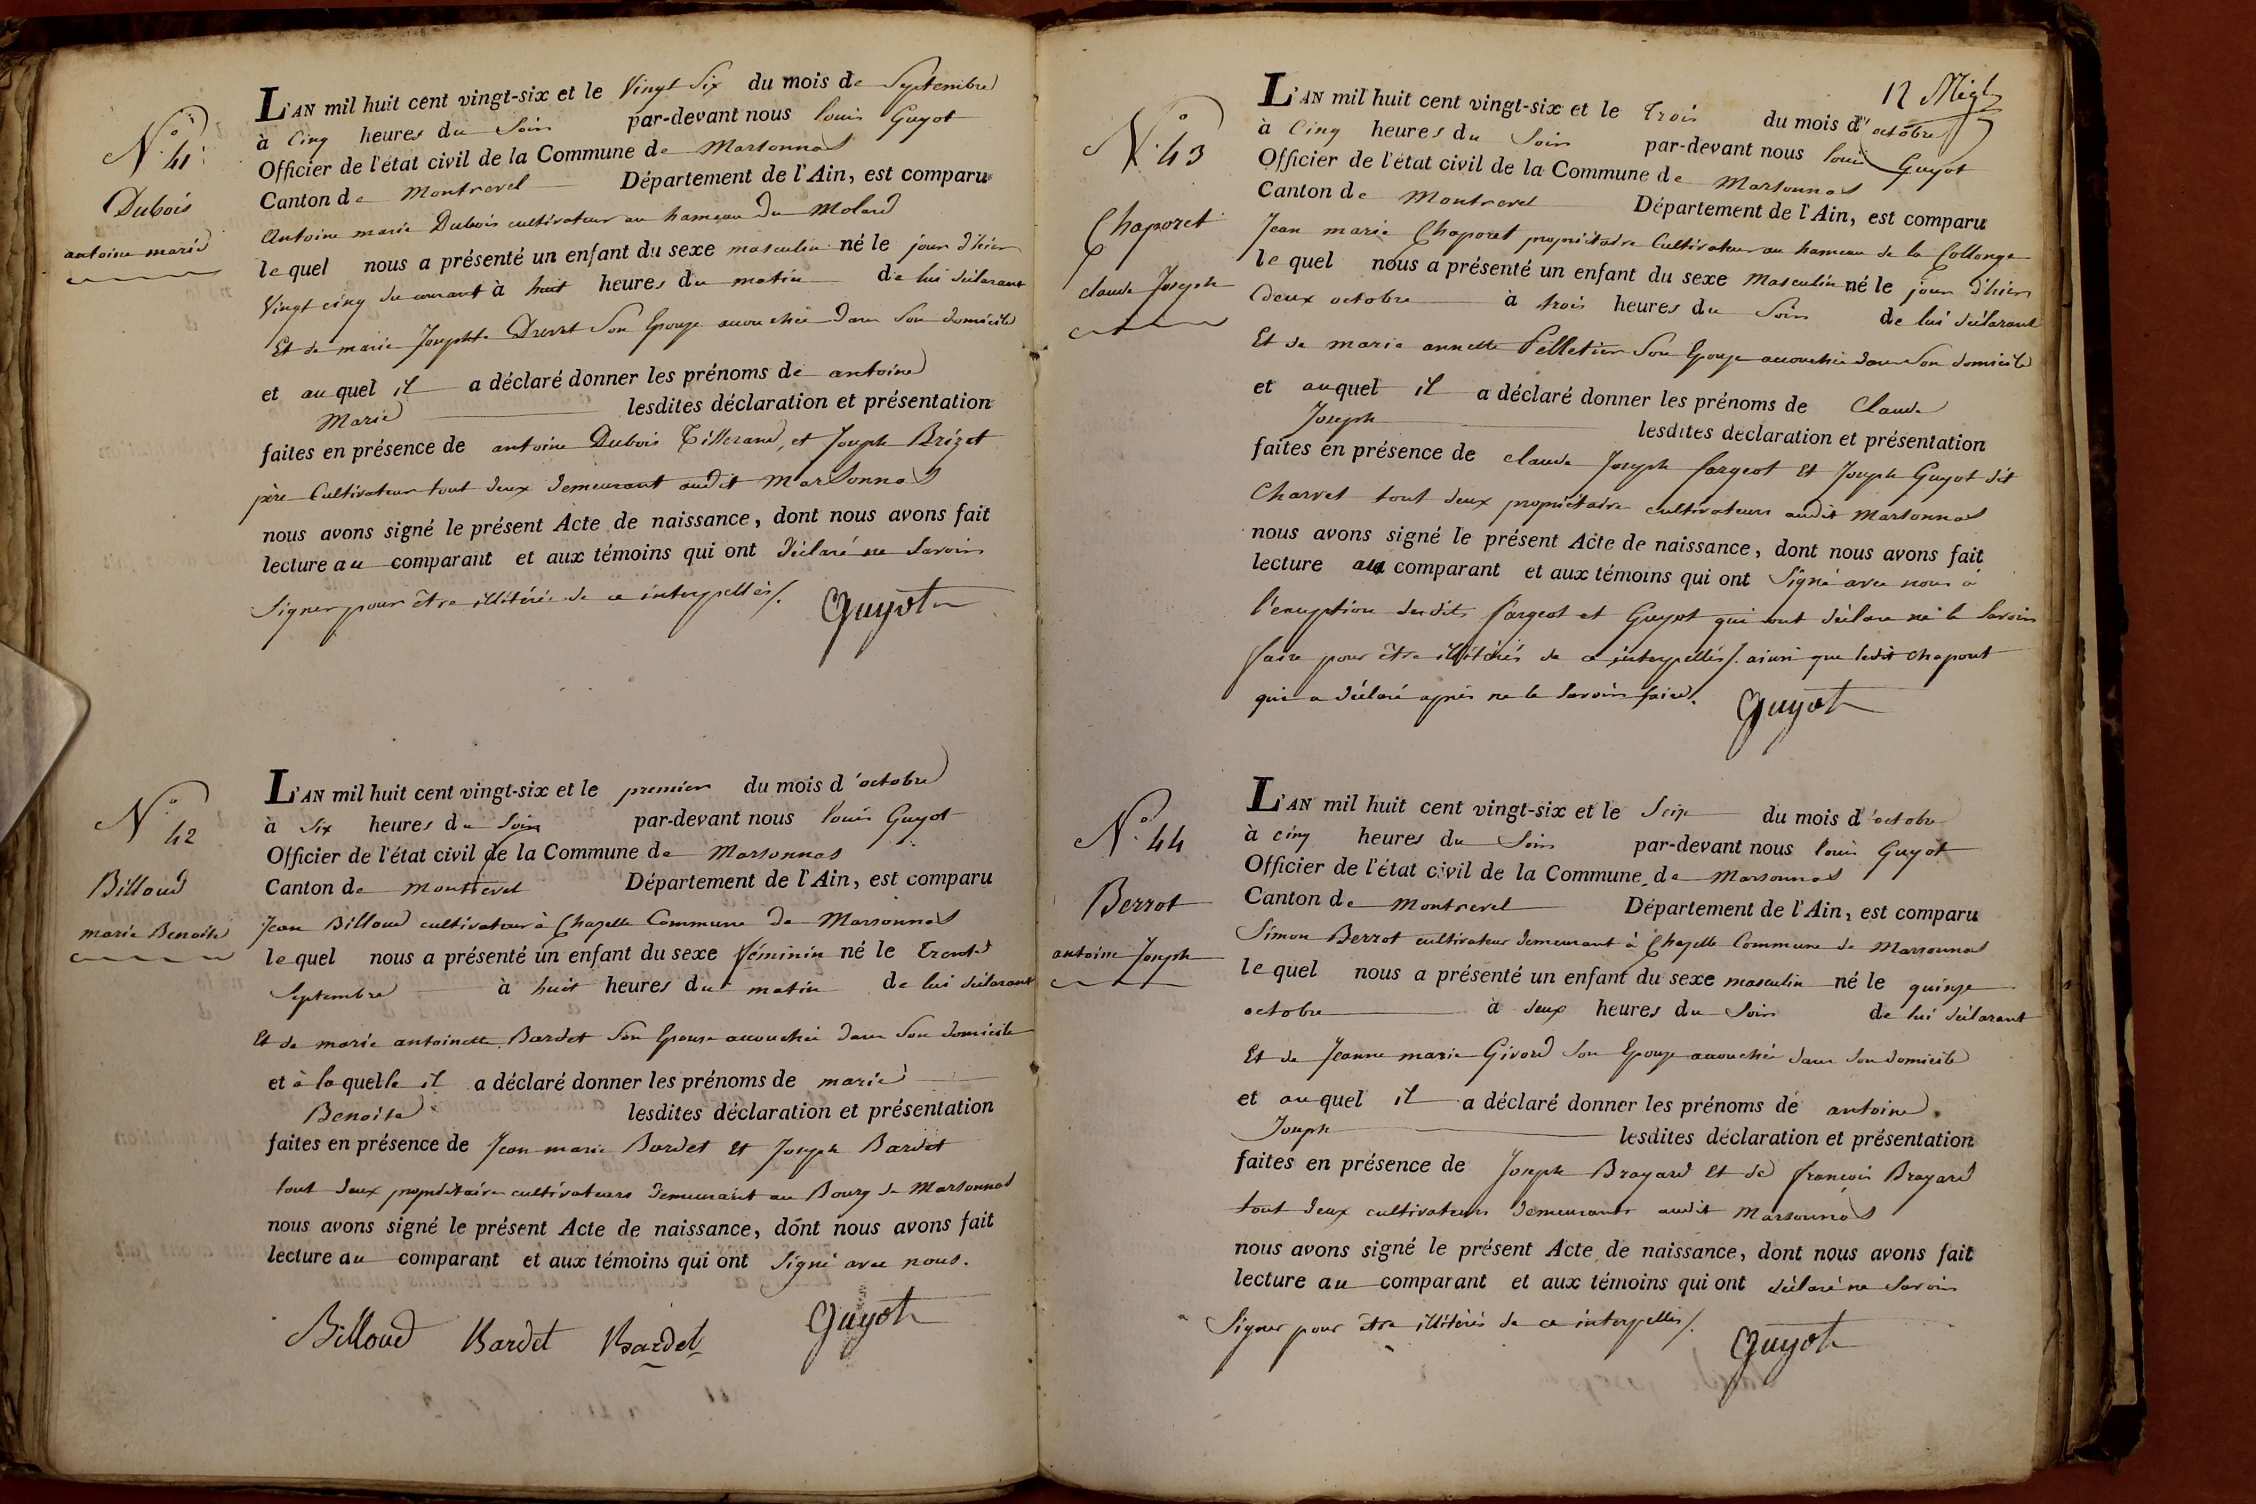 N.° 41.
Dubois
antoine marie
L'AN mil huit cent vingt-six et le Vingt Six du mois de Septembre
à Cinq heures du Soir par-devant nous louis Guyot
Officier de l'état civil de la Commune de Marsonnas
Canton de Montrevel Département de l'Ain, est comparu
Antoine marie Dubois cultivateur au hameau du Molard
lequel nous a présenté un enfant du sexe masculin né le jour d'hier
Vingt cinq du courant à huit heures du matin de lui déclarant
Et de marie Josephte Drevet Son Epouze accouchée dans Son domicile
et auquel il a déclaré donner les prénoms de antoine
Marie lesdites déclaration et présentation
faites en présence de antoine Dubois Tisserand, et Joseph Brizet
père Cultivateur tout deux demeurant audit Marsonnas
nous avons signé le présent Acte de naissance, dont nous avons fait
lecture au comparant et aux témoins qui ont déclaré ne Savoir
Signer pour être illitérés de ce interpellés/. Guyot
N.° 42
Billoud
marie Benoite
L'AN mil huit cent vingt-six et le premier du mois d'octobre
à Six heures du Soir par-devant nous louis Guyot
Officier de l'état civil de la Commune de Marsonnas
Canton de montrevel Département de l'Ain, est comparu
Jean Billoud cultivateur à Chapelle Commune de Marsonnas
lequel nous a présenté un enfant du sexe féminin né le Trente
Septembre à huit heures du matin de lui déclarant
Et de marie antoinette Bardet Son Epouse accouchée dans Son domicile
et à laquelle il a déclaré donner les prénoms de marie
Benoite lesdites déclaration et présentation
faites en présence de Jean marie Bardet Et Joseph Bardet
tout deux propriétaire cultivateurs demeurant au Bourg de Marsonnas
nous avons signé le présent Acte de naissance, dont nous avons fait
lecture au comparant et aux témoins qui ont Signé avec nous.
Billoud Bardet Bardet Guyot
12
N.° 43
Chaporet
claude Joseph
L'AN mil huit cent vingt-six et le Trois du mois d'octobre
à Cinq heures du Soir par-devant nous louis Guyot
Officier de l'état civil de la Commune de Marsonnas
Canton de Montrevel Département de l'Ain, est comparu
Jean marie Chaporet propriétaire Cultivateur au hameau de la Collonge
lequel nous a présenté un enfant du sexe Masculin né le jour d'hier
deux octobre à trois heures du Soir de lui déclarant
Et de marie annette Pelletier Son Epouze accouchée dans Son domicile
et auquel il a déclaré donner les prénoms de Claude
Joseph lesdites déclaration et présentation
faites en présence de claude Joseph fargeot Et Joseph Guyot dit
Charvet tout deux propriétaire cultivateurs audit Marsonnas
nous avons signé le présent Acte de naissance, dont nous avons fait
lecture au comparant et aux témoins qui ont Signé avec nous à
l'exeption desdits fargeot et Guyot qui ont déclaré ne le Savoir
faire pour être illitérés de ce interpellés/. ainsi que ledit chaporet
qui a déclaré après ne le Savoir faire/. Guyot
N.° 44
Berrot
antoine Joseph
L'AN mil huit cent vingt-six et le Seize du mois d'octobre
à cinq heures du Soir par-devant nous louis Guyot
Officier de l'état civil de la Commune de Marsonnas
Canton de Montrevel Département de l'Ain, est comparu
Simon Berrot cultivateur demeurant à Chapelle Commune de Marsonnas
lequel nous a présenté un enfant du sexe masculin né le quinze
octobre à deux heures du Soir de lui déclarant
Et de Jeanne marie Givord Son Epouze accouchée dans Son domicile
et auquel il a déclaré donner les prénoms de antoine
Joseph lesdites déclaration et présentation
faites en présence de Joseph Brayard Et de françois Brayard
tout deux cultivateurs demeurants audit Marsonnas
nous avons signé le présent Acte de naissance, dont nous avons fait
lecture au comparant et aux témoins qui ont déclaré ne Savoir
Signer pour être illitérés de ce interpellés/. Guyot